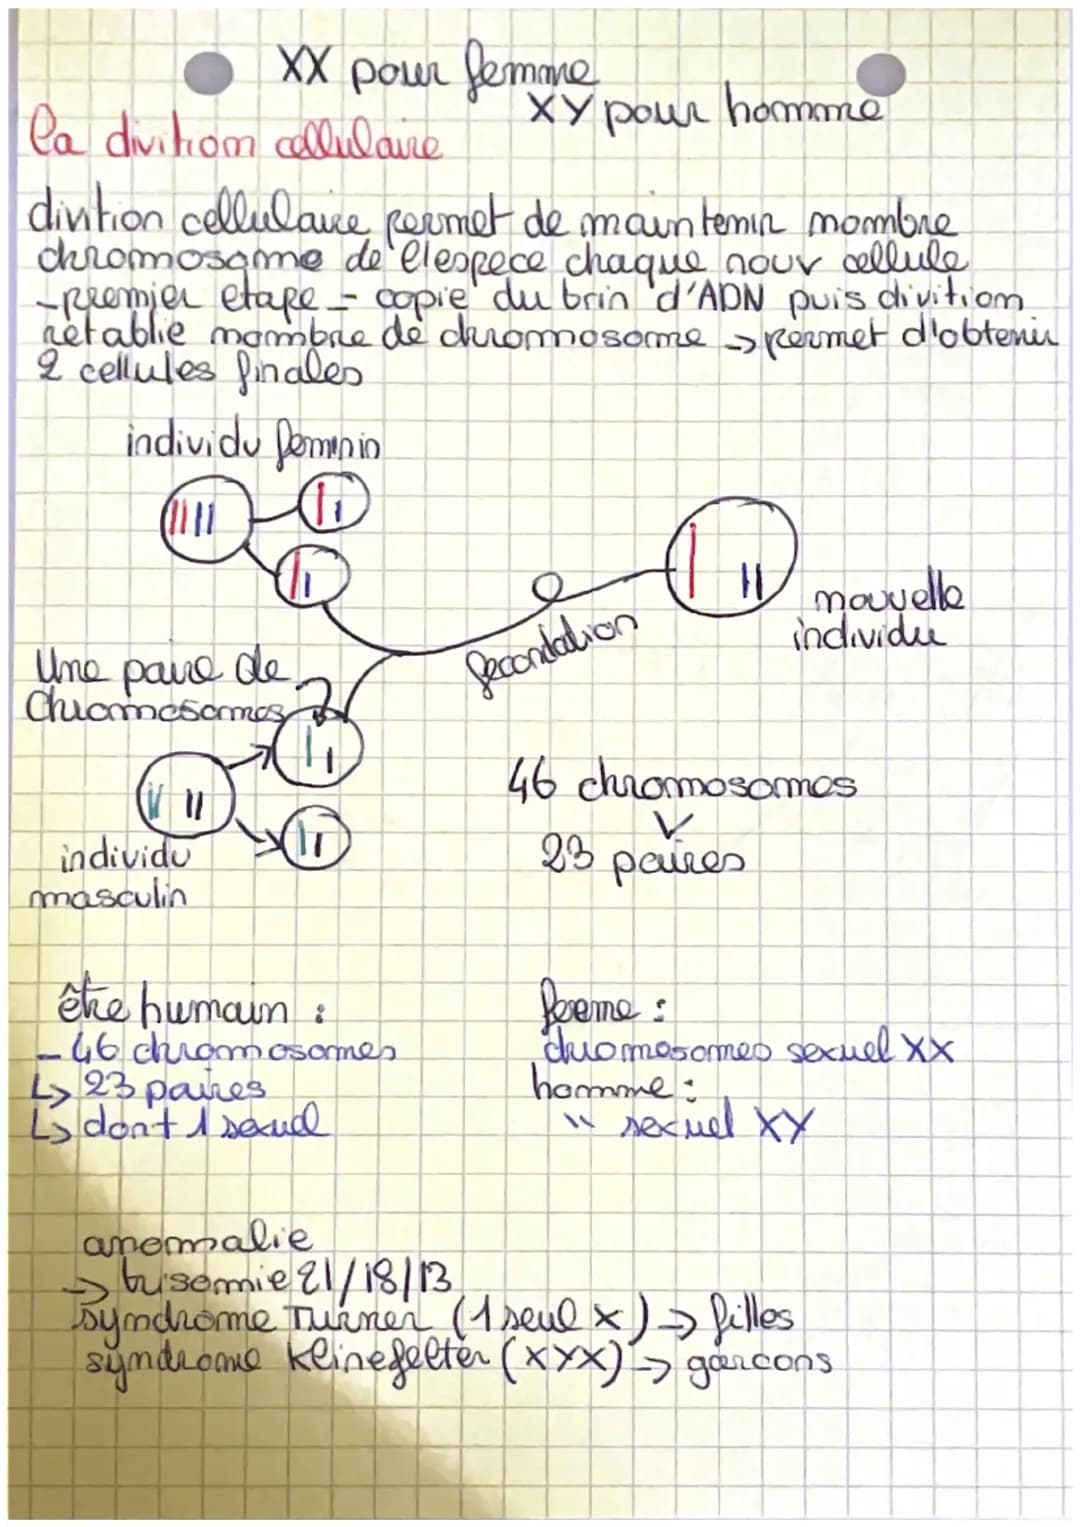 XX pour femme
XY pour homme
la divition cellulaire
divition cellulaire permet de maintenir nombre
chromosome de l'espece chaque nouv cellule
- premier etape - copie du brin d'ADN puis divition
retablie nombre de chromosome → permet d'obtenir
2 cellules finales
individu feminin
nouvelle
individu
fecondation
Une paire de
Chromosomes
46 chromosomes
23 paires
individu
masculin
être humain :
- 46 chromosomes
↳ 23 paires
↳ dont 1 sexuel
feeme :
chromosomes sexuel XX
homme :
" sexuel XY
anomalie
→ trisomie 21/18/13
syndrome Turner (1 seul x) → filles
syndrome kleinefelter (XYX) → garcons